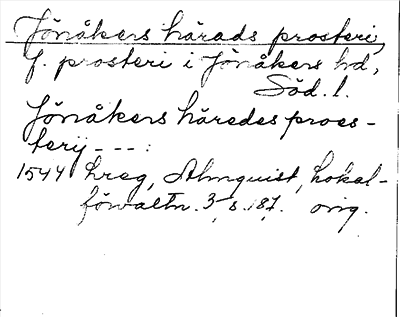 Jönåkers härads prosteri,
f. prosteri i Jönåkers hd,
Söd. l.
Jönåkers häredes proes-
terij - - - :
1544 hreg, Almquist, Lokal-
förvaltn. 3, s. 187. orig.